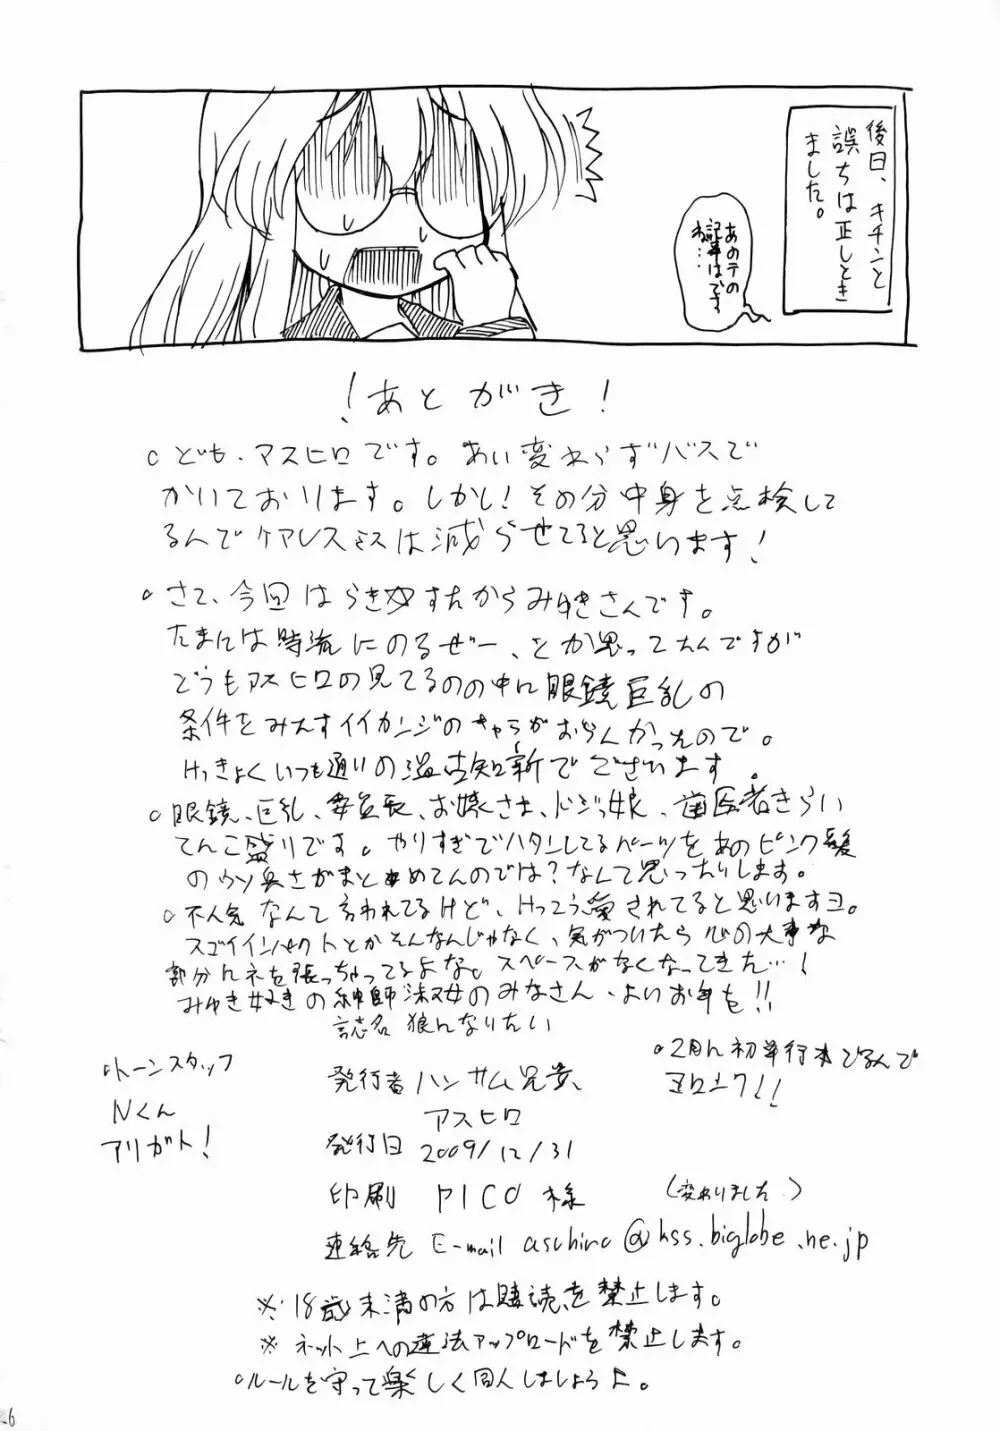 後日、キチンと
誤ちは正しとき
ました。
あのテの
記事はですね…
！あとがき！
○ども、アスヒロです。あい変わらずバスで
かいております。しかし！その分中身を点検して
るんでケアレスミスは減らせてると思います！
○さて、今回はらき☆すたからみゆきさんです。
たまには時流にのるぜー、とか思ってたんですが
どうもアスヒロの見てるのの中に眼鏡巨乳の
条件をみたすイイカンジのキャラがおらんかったので。
けっきょくいつも通りの温故知新でございます。
○眼鏡、巨乳、委員長、お嬢さま、ドジッ娘、歯医者きらい
てんこ盛りです。やりすぎでハタンしてるパーツをあのピンク髪
のウソ臭さがまとめてんのでは？なんて思ったりします。
○不人気なんて言われてるけど、けっこう愛されてると思いますヨ。
スゴイインパクトとかそんなんじゃなく、気がついたら心の大事な
部分にネを張っちゃってるよな。スペースがなくなってきた…！
みゆき好きの紳師淑女のみなさん、よいお年を!!
誌名 狼になりたい
○トーンスタッフ
Nくん
アリガト！
○2月に初単行本でるんで
ヨロシク!!
発行者 ハンサム兄貴、
アスヒロ
発行日 2009/12/31
印刷 PICO 様
(変わりました)
連絡先 E-mail asuhiro@kss.biglobe.ne.jp
※18歳未満の方は購読を禁止します。
※ネット上への違法アップロードを禁止します。
○ルールを守って楽しく同人しましょうよ。